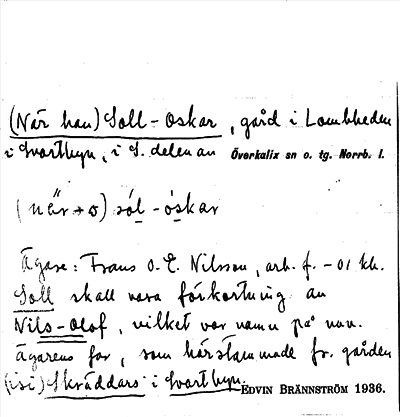 (När han) Soll-Oskar, gård i Lombheden
i Svartbyn, i S. delen av Överkalix sn o. tg. Norrb. l.
(när o) sól-óskar
Ägare: Frans O. E. Nilsson, arb. f. -01 kh.
Soll skall vara förkortning av
Nils-Olof, vilket var namn på nuv.
ägarens far, som härstammade fr. gården
(isi) Skräddars i Svartbyn.
EDVIN BRÄNNSTRÖM 1936.